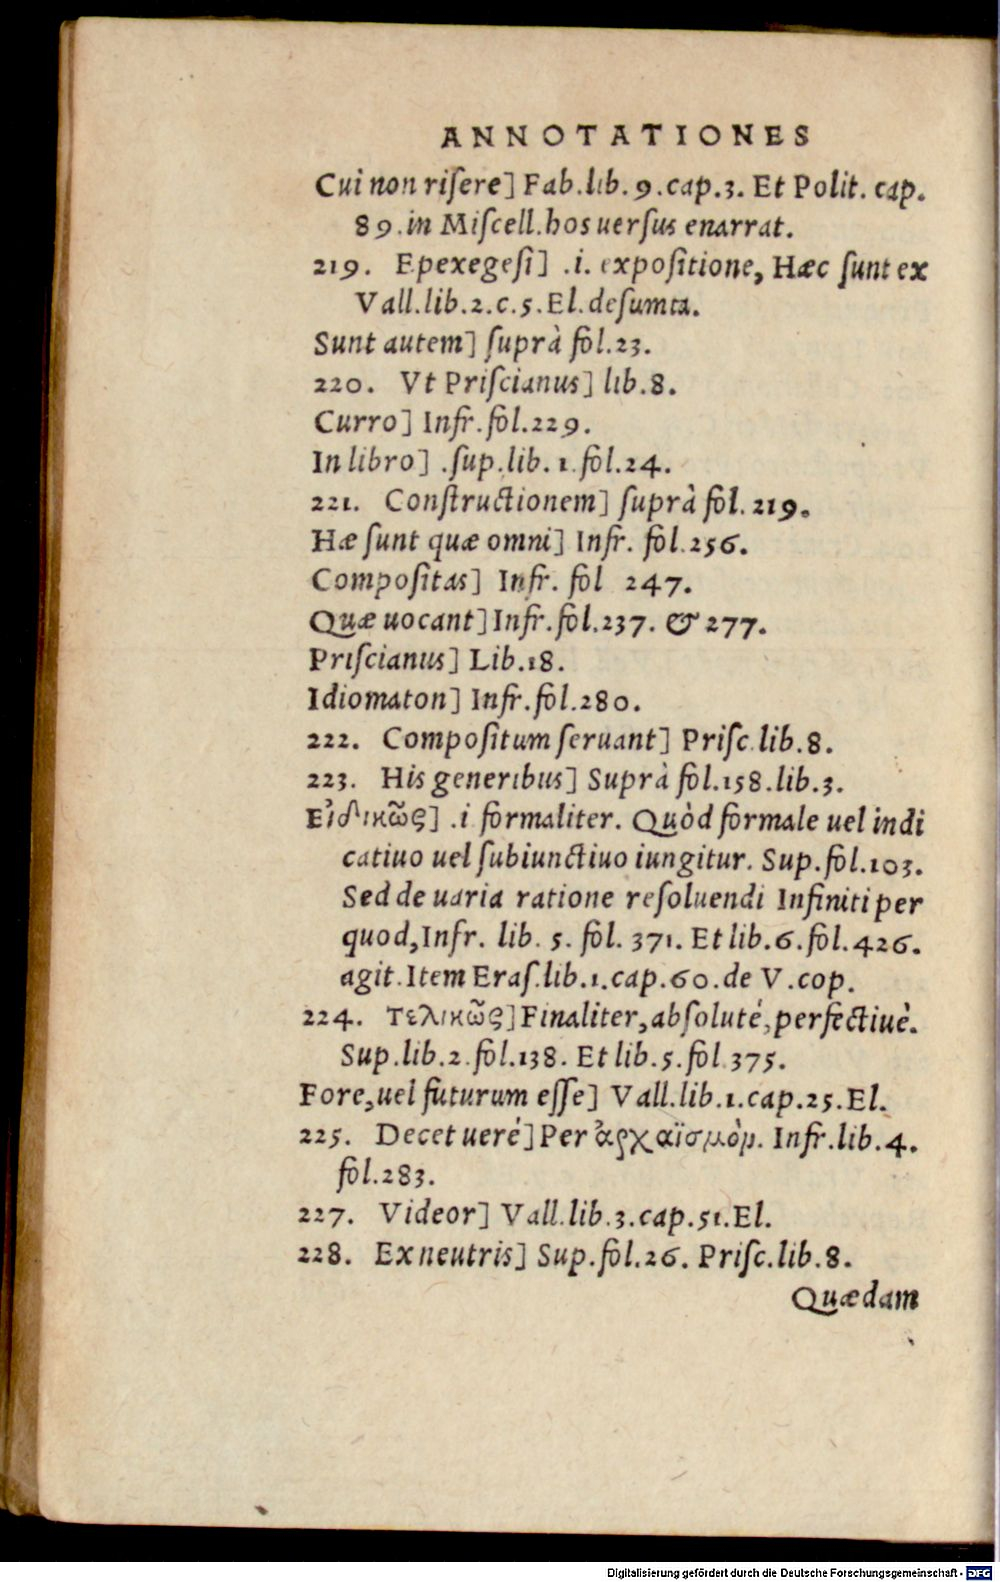 ANNOTATIONES
Cui non riſere] Fab.lib. 9.cap.3. Et Polit. cap.
89.in Miſcell.hos uerſus enarrat.
219. Epexegeſi] .i. expoſitione, Hæc ſunt ex
Vall.lib.2.c.5.El.deſumta.
Sunt autem] ſuprà fol.23.
220. Vt Priſcianus] lib.8.
Curro] Infr.fol.229.
In libro] .ſup.lib. 1.fol.24.
221. Conſtructionem] ſuprà fol. 219.
Hæ ſunt quæ omni] Infr. fol.256.
Compoſitas] Infr. fol 247.
Quæ uocant] Infr.fol.237. & 277.
Priſcianus] Lib.18.
Idiomaton] Infr.fol.280.
222. Compoſitum ſeruant] Priſc.lib.8.
223. His generibus] Suprà fol.158.lib.3.
Εἰδικῶς] .i formaliter. Quòd formale uel indi
catiuo uel ſubiunctiuo iungitur. Sup.fol.103.
Sed de uaria ratione reſoluendi Infiniti per
quod,Infr. lib. 5. fol. 371. Et lib.6.fol.426.
agit.Item Eraſ.lib.1.cap.60.de V.cop.
224. τελικῶς] Finaliter,abſoluté,perfectiuè.
Sup.lib.2.fol.138. Et lib.5.fol.375.
Fore,uel futurum eſſe] Vall.lib.1.cap.25.El.
225. Decet ueré] Per ἀρχαϊσμὸμ. Infr.lib.4.
fol.283.
227. Videor] Vall.lib.3.cap.51.El.
228. Ex neutris] Sup.fol.26. Priſc.lib.8.
Quædam
Digitalisierung gefördert durch die Deutsche Forschungsgemeinschaft - DFG